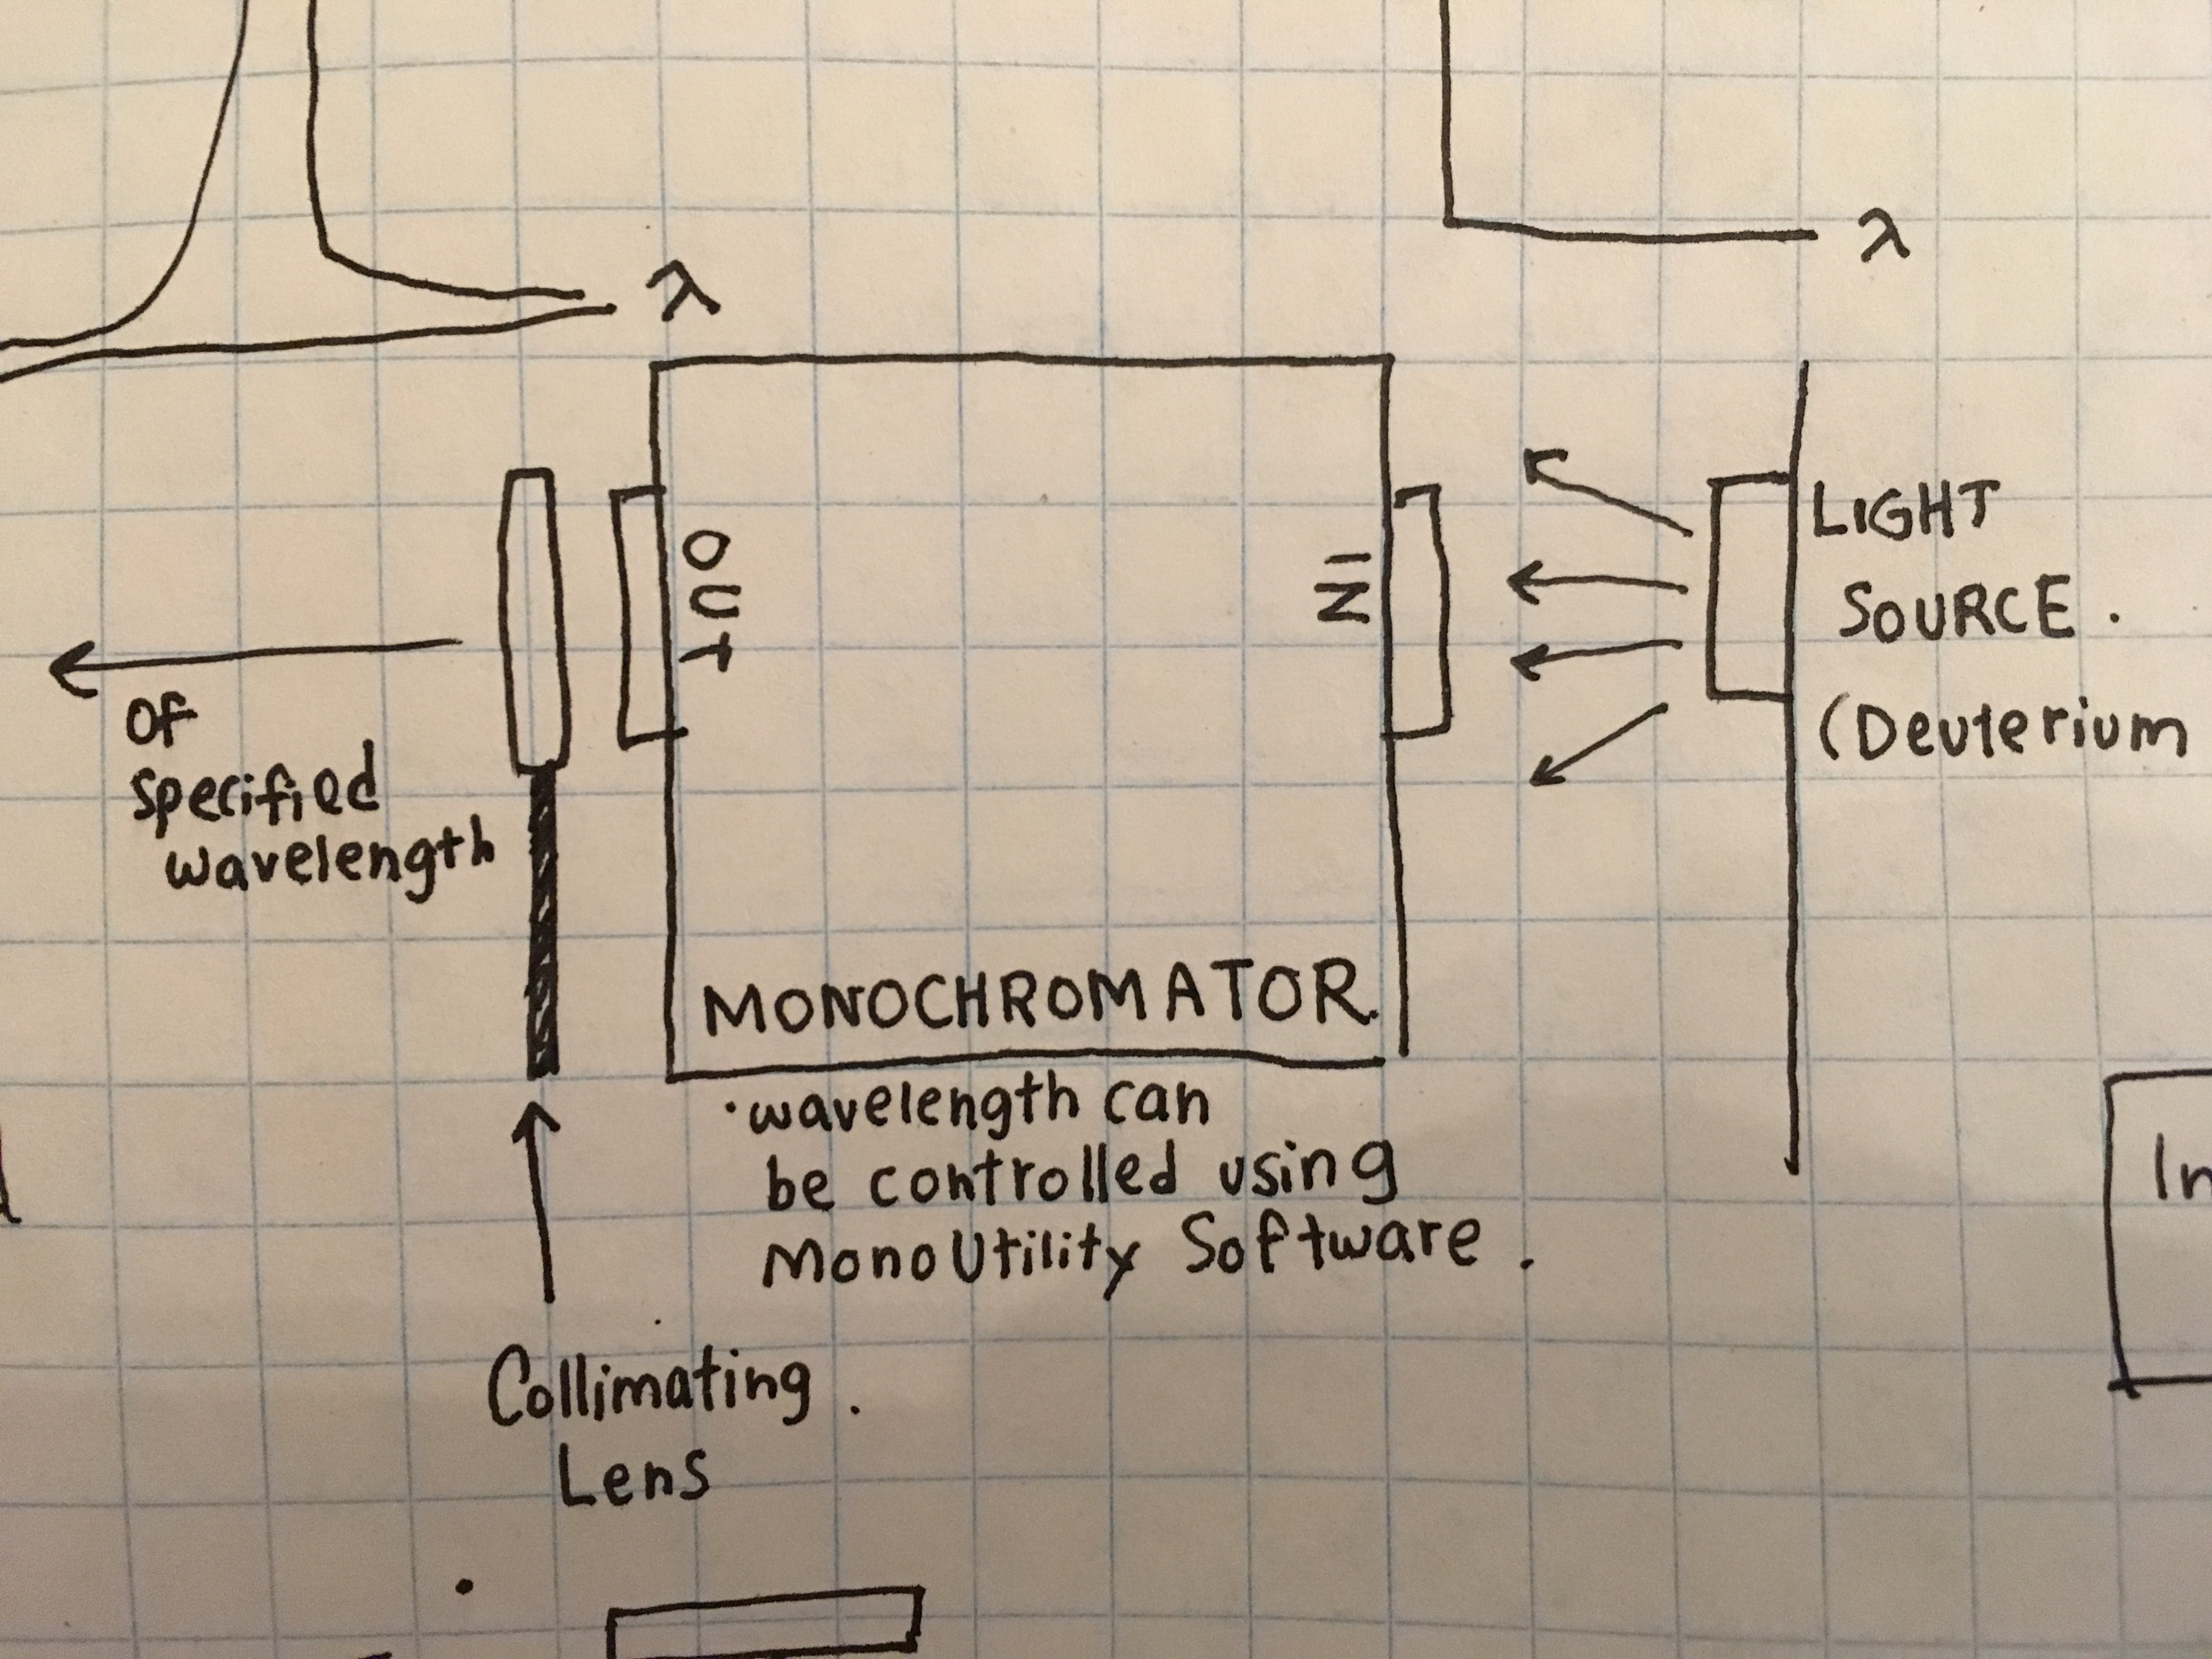 λ
λ
OUT
IN
LIGHT
SOURCE.
(Deuterium
of
specified
wavelength
MONOCHROMATOR.
·wavelength can
be controlled using
MonoUtility Software.
Collimating.
Lens
In